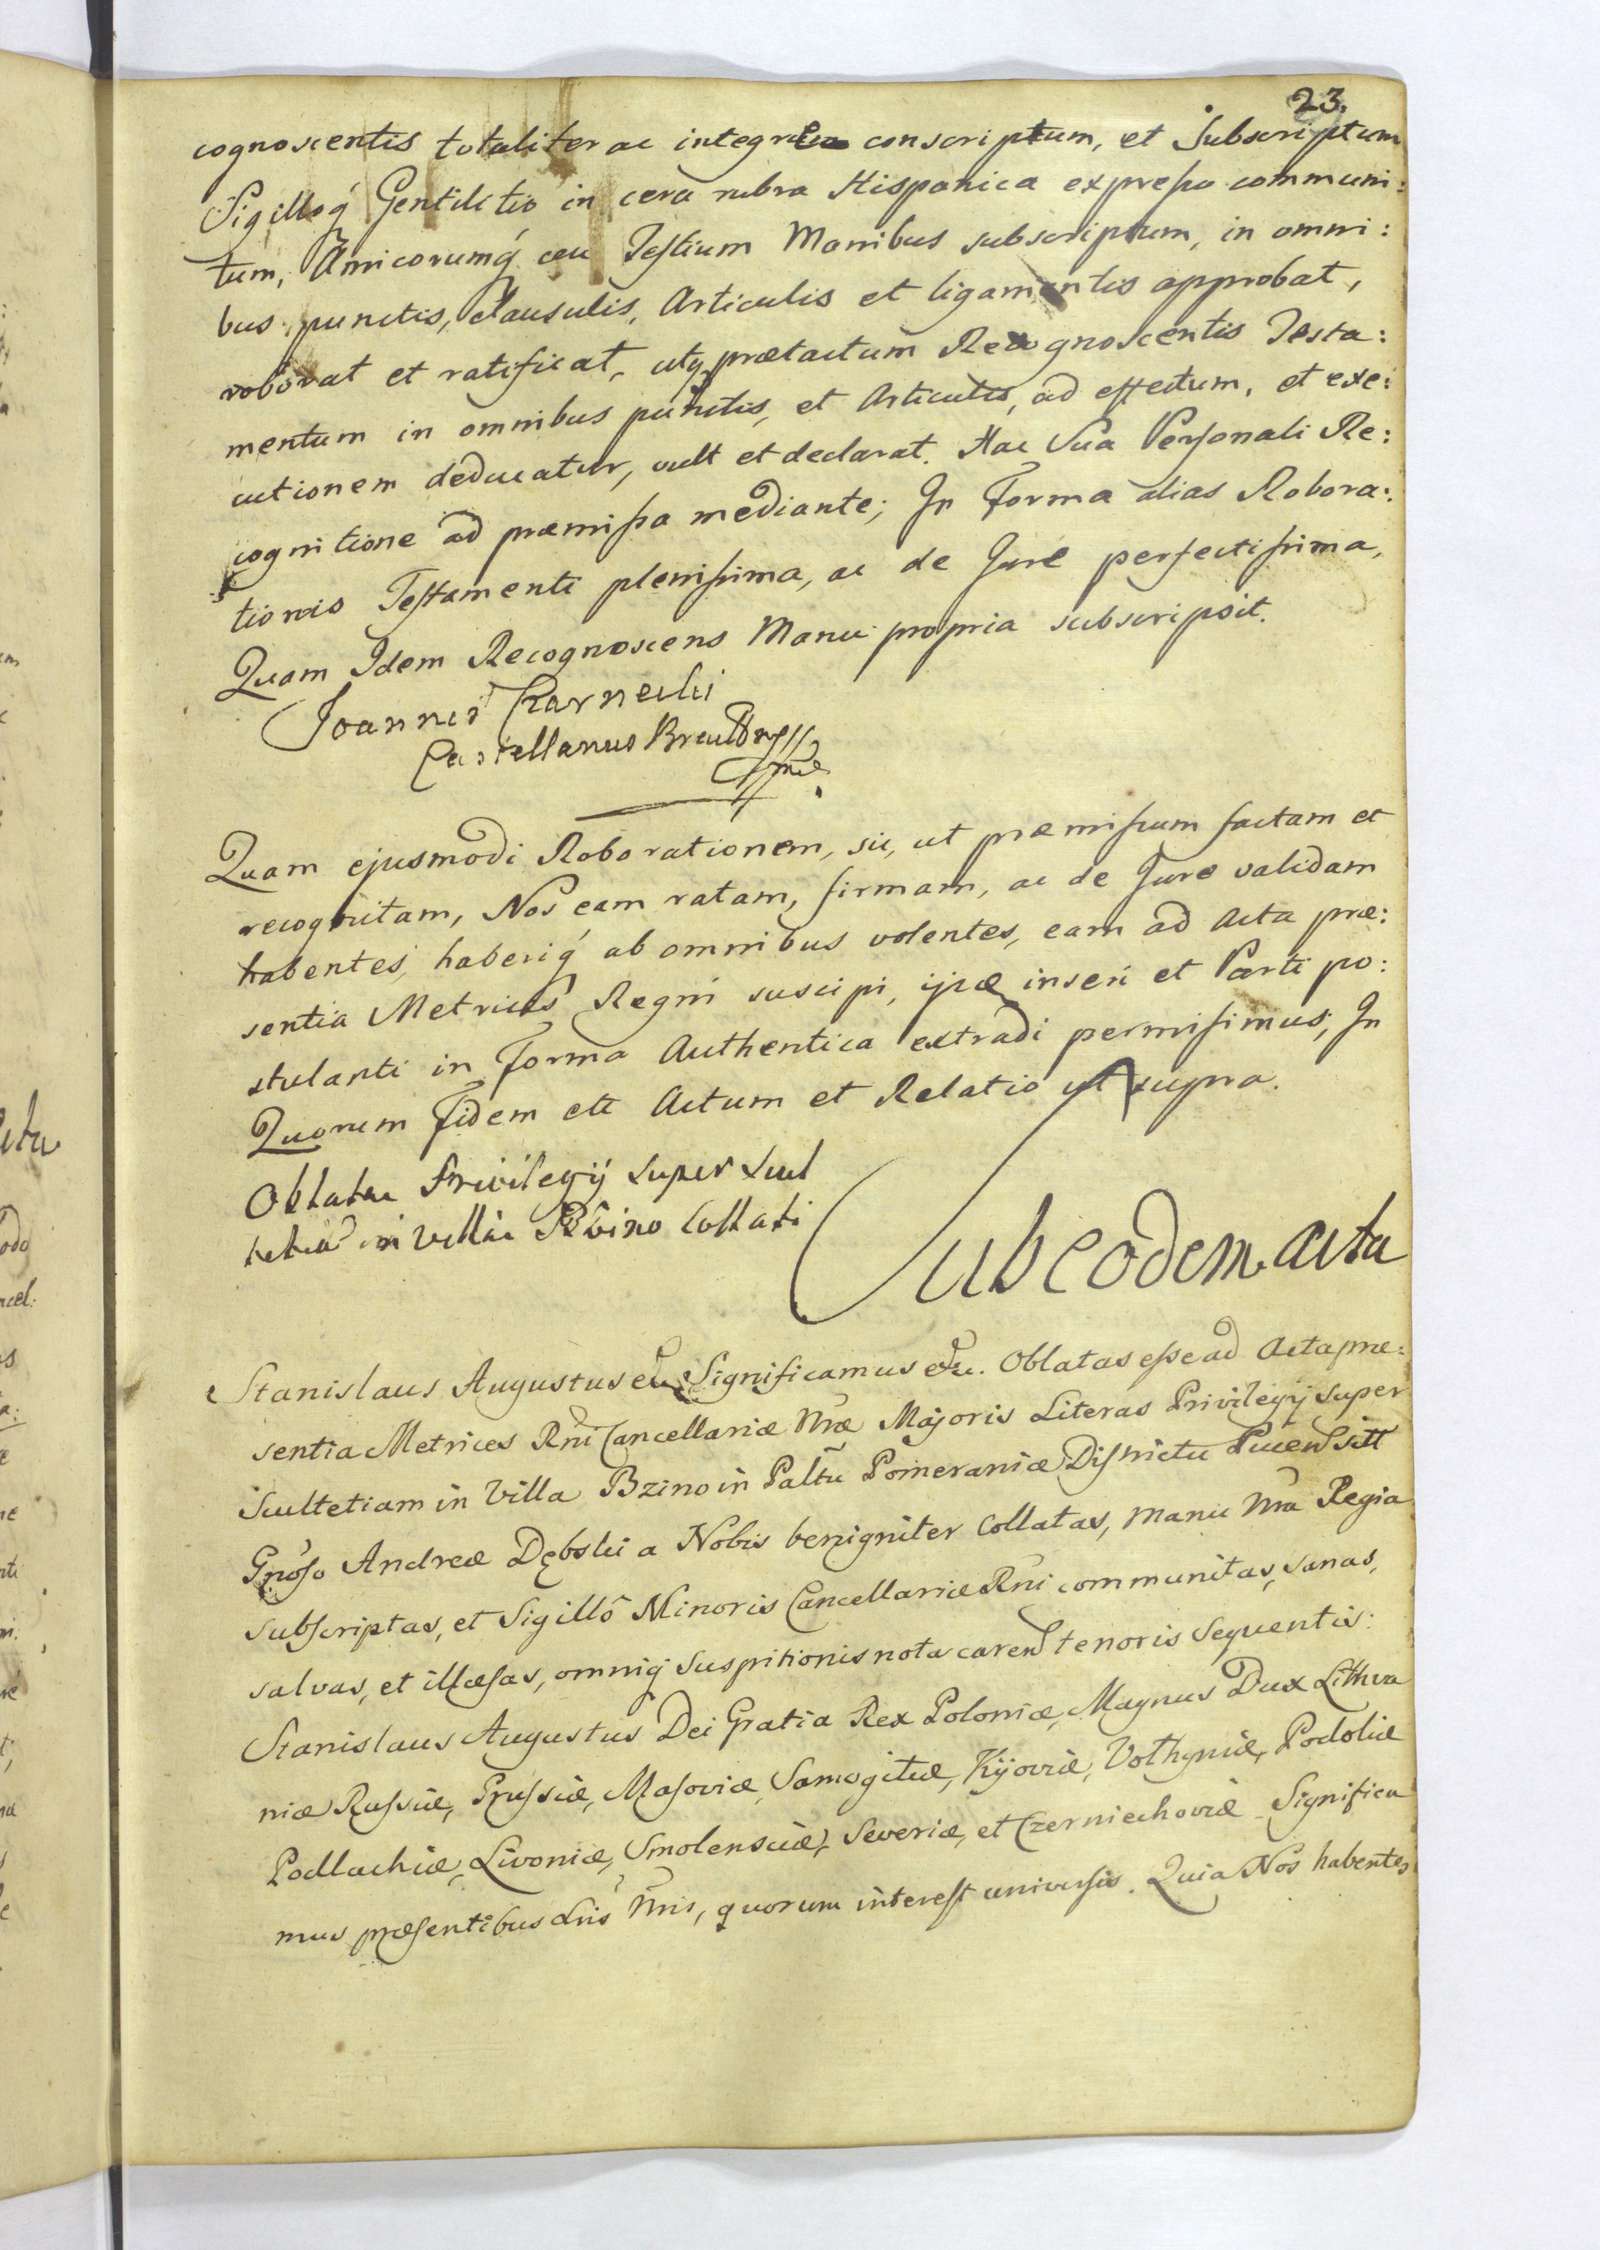 23.
cognoscentis totaliter ac integre conscriptum, et Subscriptum
Sigilloq́ Gentilitio in cera rubra Hispanica expreſso communi:
tum, Amicorumq́ ceu Teſtium Manibus subscriptum, in omni:
bus punctis, clausulis, Articulis et ligamentis approbat,
roborat et ratificat, utq, prætactum Recognoscentis Testa:
mentum in omnibus punctis, et Articulis, ad effectum, et exe:
cutionem deducatur, vult et declarat. Hac Sua Perſonali Re:
cognitione ad præmiſsa mediante; In Forma alias Robora:
tionis Teſtamenti pleniſsima, ac de Jure perfectiſsima,
Quam Idem Recognoscens Manu propria subscripsit.
Joannes Czarnecki
Castellanus
mp
Quam ejusmodi Roborationem, sic, ut præmiſsum factam et
recognitam, Nos eam ratam, firmam, ac de Jure validam
habentes, haberiq́ ab omnibus volentes, eam ad Acta præ:
sentia Metrices Regni suscipi, ijsq inseri et Parti po:
stulanti in Forma Authentica extradi permiſimus; In
Quorum Fidem ett Actum et Relatio ut supra.
Oblata Privilegij super Scul
tetia in Villa Bzino Collati
Sub eodem acta
Stanislaus Augustus etc Significamus etc. Oblatas eſse ad Acta præ:
sentia Metrices Rni Cancellariæ Nræ Majoris Literas Privilegij super
Scultetiam in Villa Bzino in Paltu Pomeraniæ Diſtrictu Pucen sitt
Gnoſo Andreæ Dębski a Nobis benigniter Collatas, Manu Nra Regia
subſcriptas, et Sigillô Minoris Cancellariæ Rni communitas, sanas,
salvas, et illæſas, omniq́ Suspitionis nota caren tenoris Sequentis:
Stanislaus Augustus Dei Gratia Rex Poloniæ, Magnus Dux Lithva
niæ Ruſsiæ, Pruſsiæ, Maſoviæ, Samogitiæ, Kijoviæ, Volhyniæ, Podoliæ
Podlachiæ, Livoniæ, Smolensciæ, Severiæ, et Czerniechoviæ Significa
mus præſentibus Lris Nris, quorum intereſt universis. Quia Nos habentes